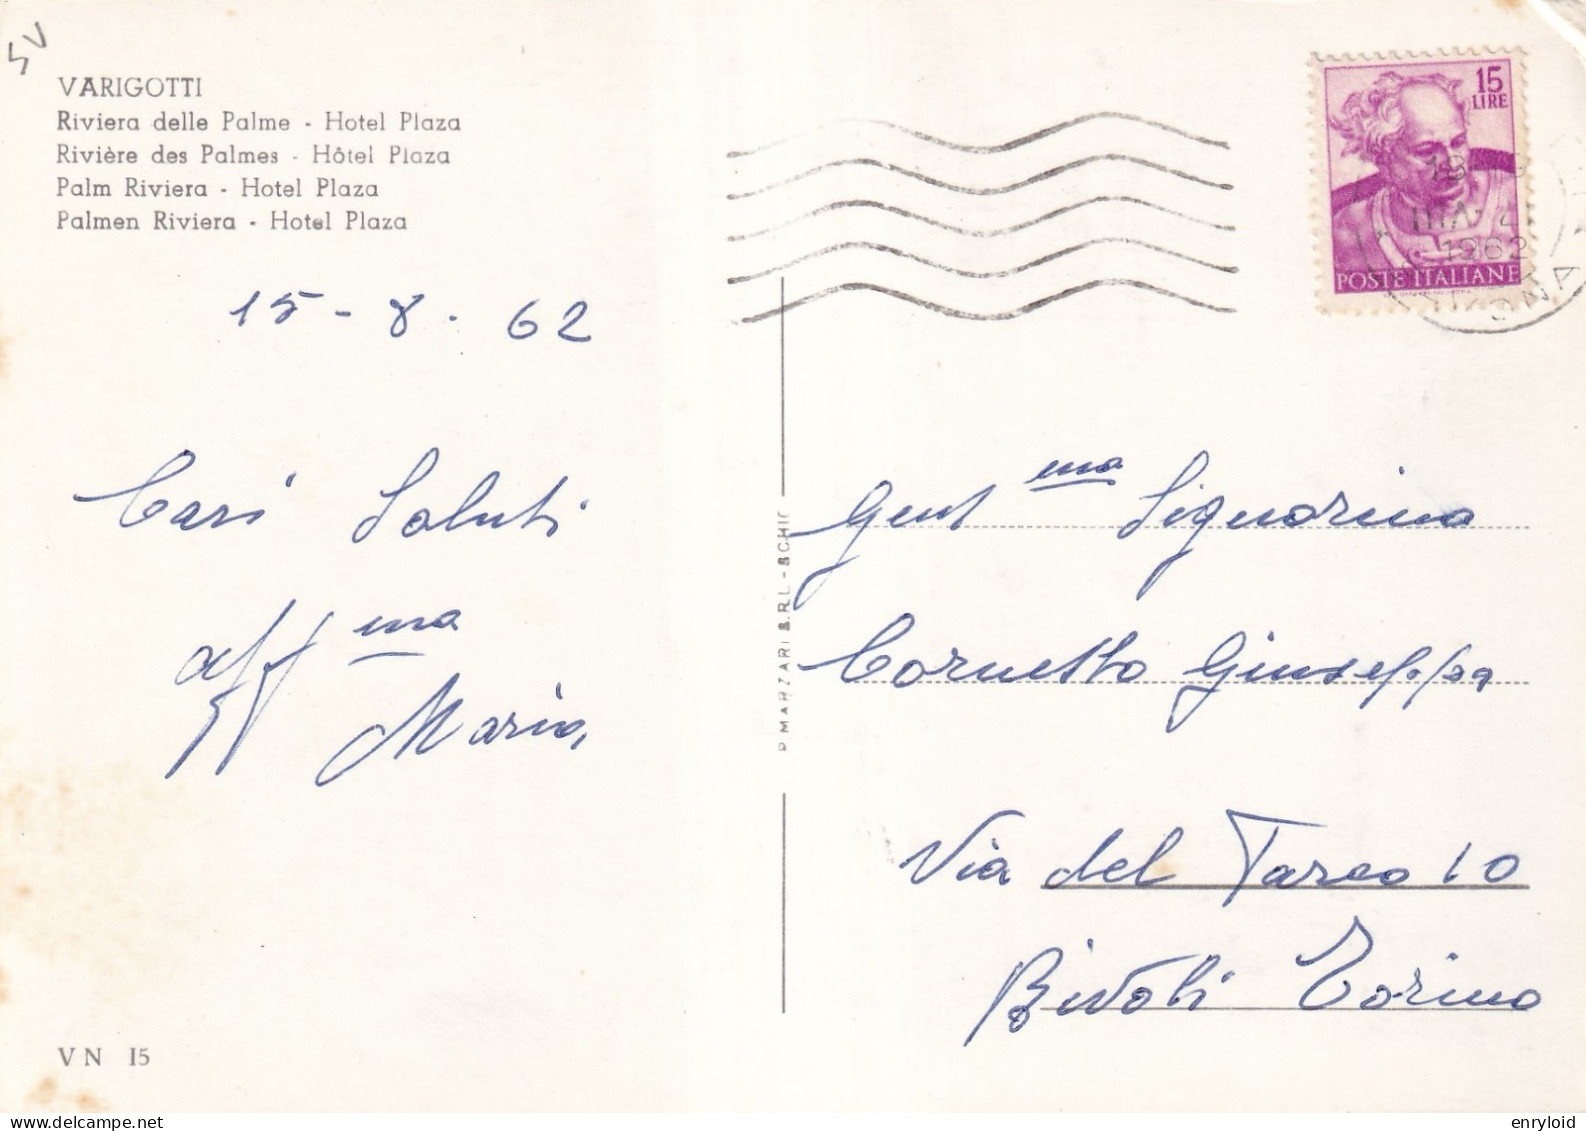 SV
VARIGOTTI
Riviera delle Palme - Hotel Plaza
Rivière des Palmes - Hôtel Plaza
Palm Riviera - Hotel Plaza
Palmen Riviera - Hotel Plaza
15 - 8 - 62
Cari Saluti
aff ma
Maria,
V N 15
MARZARI S.R.L. - SCHIO
15
LIRE
POSTE ITALIANE
1962
Gent ma Signorina
Cornetto Giuseppa
Via del Tarco 10
Rivoli Torino
www.delcampe.net
enryloid